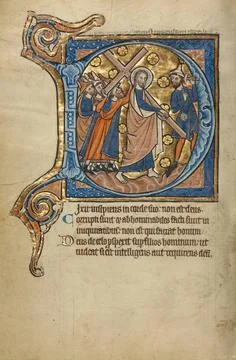 Dixit insipiens in corde suo: non est deus.
Corrupti sunt & abhominabiles facti sunt in
iniquitatibus: non est qui faciat bonum.
Deus de celo pspexit sup filios hominum: ut
uideat si est intelligens aut requirens deū.